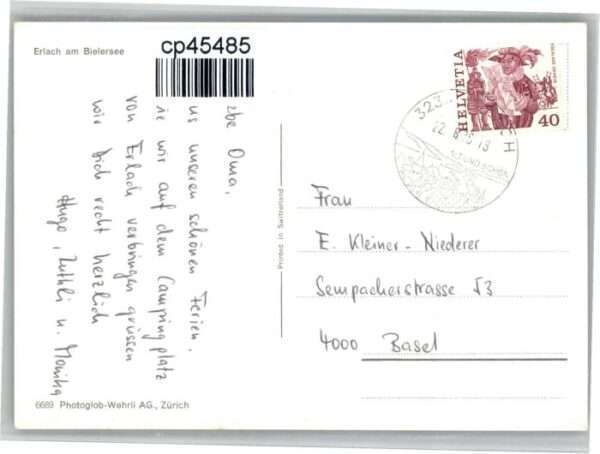 Erlach am Bielersee
cp45485
be Oma,
us unseren schönen Ferien,
ie wir auf dem Campingplatz
von Erlach verbringen grüssen
wir Dich recht herzlich
Hugo, Ruthli u. Monika
6689 Photoglob-Wehrli AG., Zürich
Printed in Switzerland
HELVETIA
40
323
22.
Frau
E. Kleiner-Niederer
Sempacherstrasse 53
4000 Basel